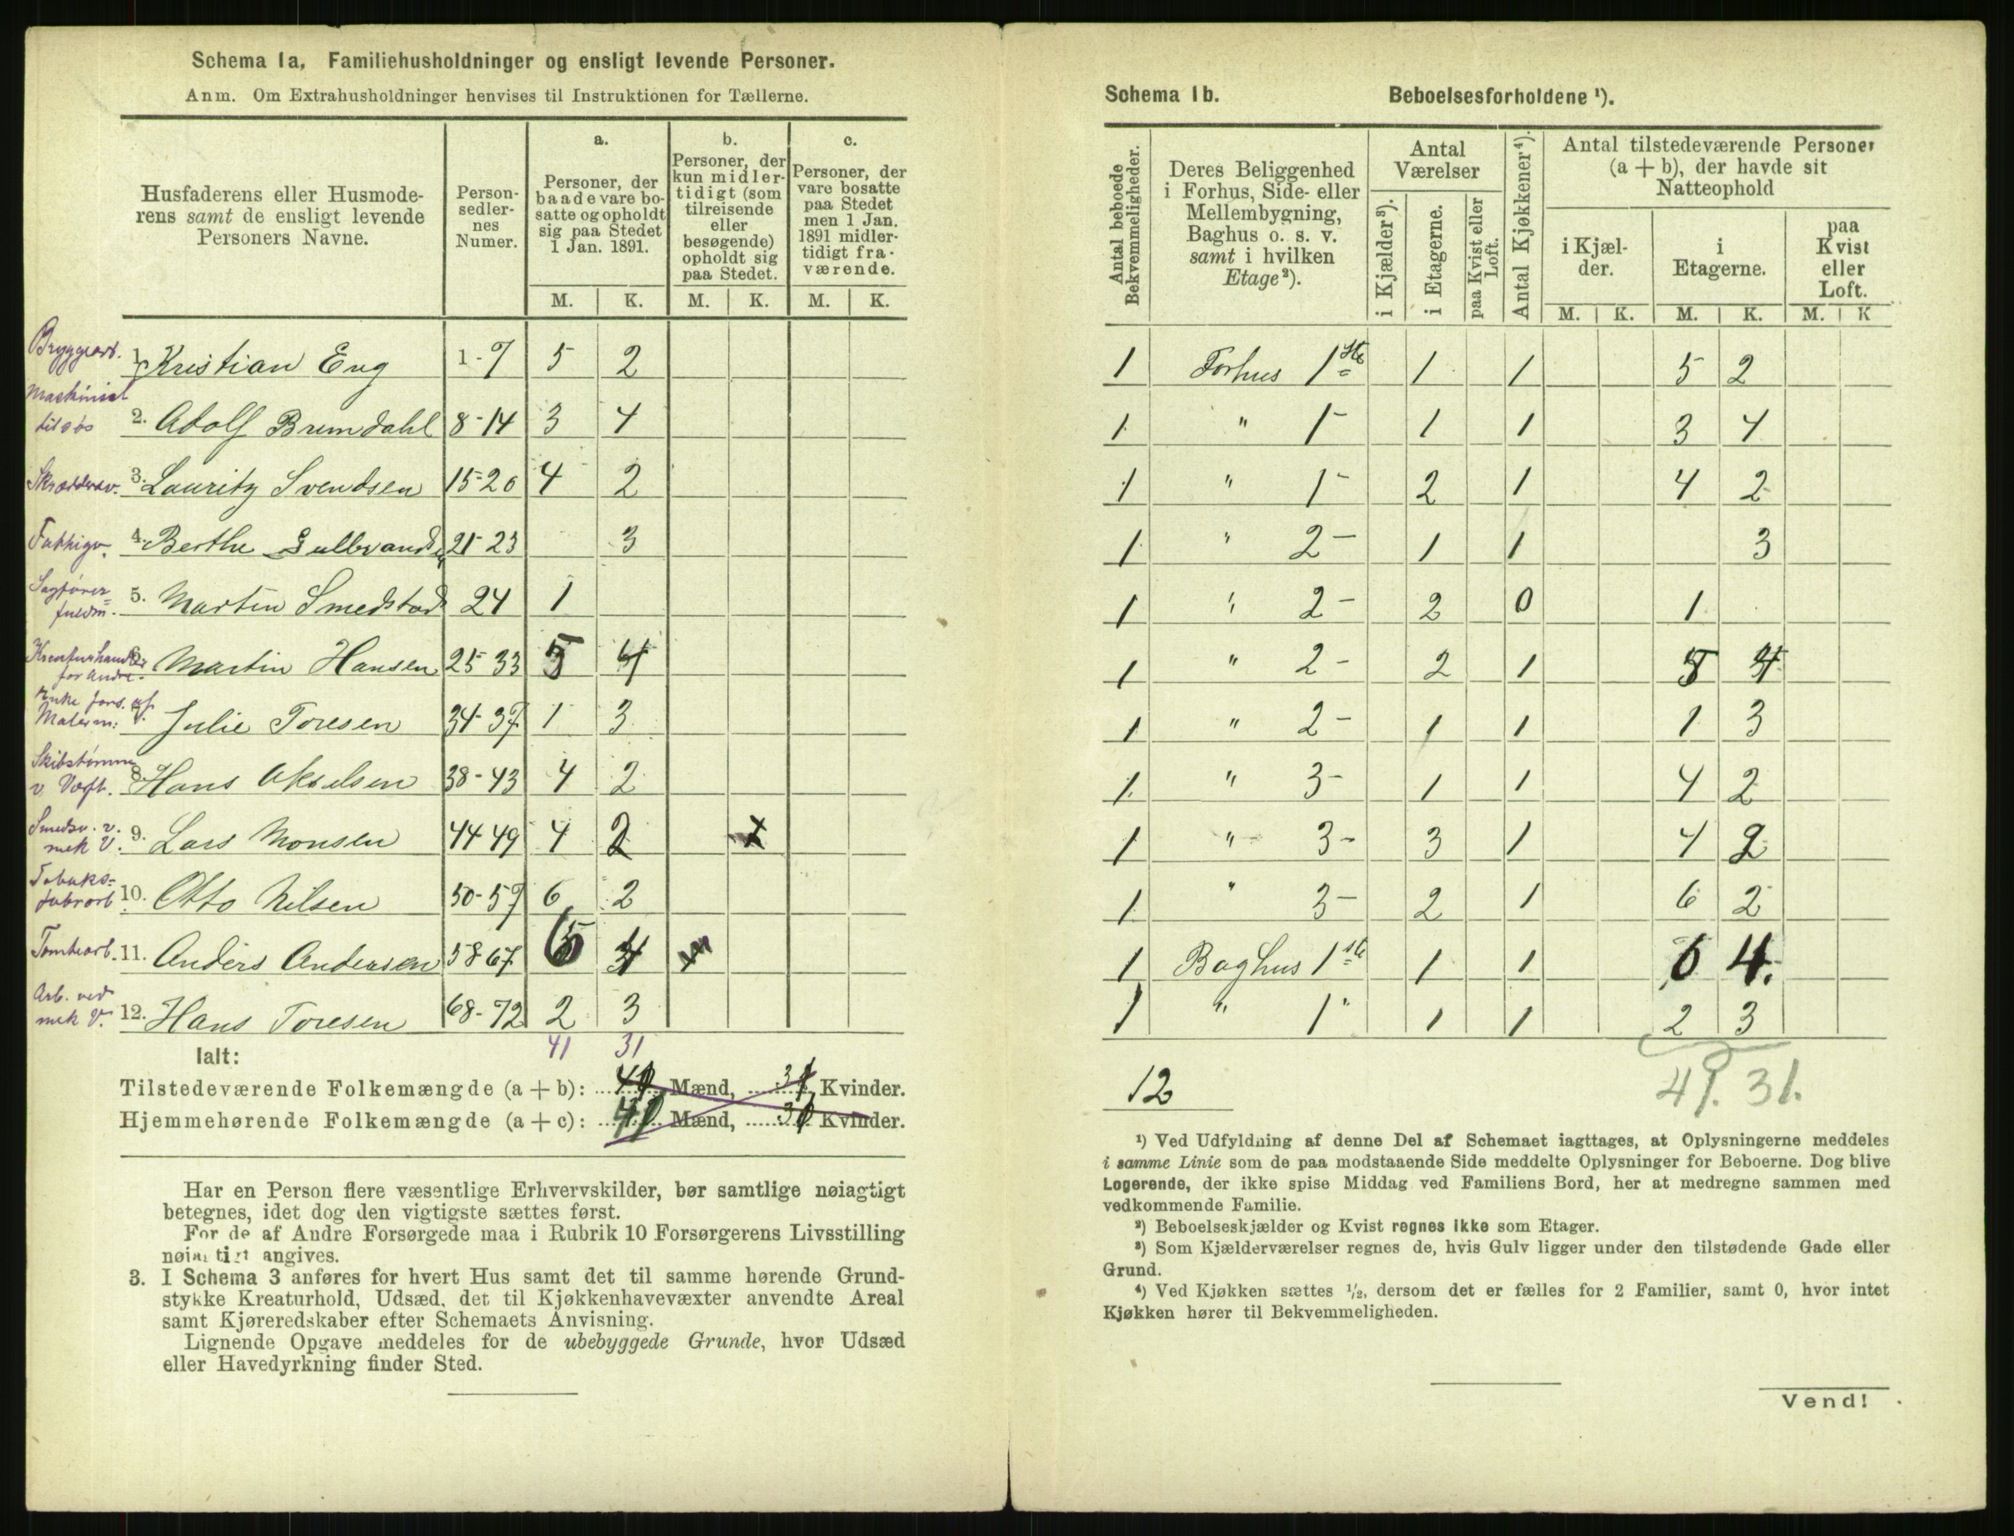 Schema 1a, Familiehusholdninger og ensligt levende Personer.
Anm. Om Extrahusholdninger henvises til Instruktionen for Tællerne.
Husfaderens eller Husmode-
rens samt de ensligt levende
Personers Navne.
Person-
sedler-
nes
Numer.
a.
Personer, der
baade vare bo-
satte og opholdt
sig paa Stedet
1 Jan. 1891.
b.
Personer, der
kun midler-
tidigt (som
tilreisende
eller
besøgende)
opholdt sig
paa Stedet.
c.
Personer, der
vare bosatte
paa Stedet
men 1 Jan.
1891 midler-
tidigt fra-
værende.
M. K. M. K. M. K.
Bryggearb. 1. Kristian Eng 1-7 5 2
Maskinist
tilsøs 2. Adolf Brundahl 8-14 3 4
Skræddersv. 3. Lauritz Svendsen 15-20 4 2
Fattigu. 4. Berthe Gulbrands 21-23 3
Sagfører=
fuldm. 5. Martin Smedstad 24 1
Kreaturhandler
for Andre. 6. Martin Hansen 25-33 5 4
Enke fors. af
Malerm. 7. Julie Toresen 34-37 1 3
Skibstømm
v. Værft. 8. Hans Akselsen 38-43 4 2
Smedsv. v.
mek V. 9. Lars Monsen 44 49 4 2
Tobaks=
fabrarb. 10. Otto Nilsen 50-57 6 2
Tomtearb. 11. Anders Andersen 58 67 6 4
Arb. ved
mek V. 12. Hans Toresen 68-72 2 3
41 31
Ialt:
Tilstedeværende Folkemængde (a + b): Mænd, Kvinder.
Hjemmehørende Folkemængde (a + c): Mænd, Kvinder.
Har en Person flere væsentlige Erhvervskilder, bør samtlige nøiagtigt
betegnes, idet dog den vigtigste sættes først.
For de af Andre Forsørgede maa i Rubrik 10 Forsørgerens Livsstilling
nøiagtigt angives.
3. I Schema 3 anføres for hvert Hus samt det til samme hørende Grund-
stykke Kreaturhold, Udsæd, det til Kjøkkenhavevæxter anvendte Areal
samt Kjøreredskaber efter Schemaets Anvisning.
Lignende Opgave meddeles for de ubebyggede Grunde, hvor Udsæd
eller Havedyrkning finder Sted.
Schema 1b. Beboelsesforholdene ¹).
Antal beboede
Bekvemmeligheder.
Deres Beliggenhed
i Forhus, Side- eller
Mellembygning,
Baghus o. s. v.
samt i hvilken
Etage²).
Antal
Værelser
i Kjælder³).
i Etagerne.
paa Kvist eller
Loft.
Antal Kjøkkener⁴).
Antal tilstedeværende Personer
(a + b), der havde sit
Natteophold
i Kjæl-
der.
i
Etagerne.
paa
Kvist
eller
Loft.
M. K. M. K. M. K
1 Forhus 1ste 1 1 5 2
1 " 1- 1 1 3 4
1 " 1- 2 1 4 2
1 " 2- 1 1 3
1 " 2- 2 0 1
1 " 2- 2 1 5 4
1 " 2- 1 1 1 3
1 " 3- 1 1 4 2
1 " 3- 3 1 4 2
1 " 3- 2 1 6 2
1 Baghus 1ste 1 1 6 4.
1 " 1" 1 1 2 3
12 41. 31.
¹) Ved Udfyldning af denne Del af Schemaet iagttages, at Oplysningerne meddeles
i samme Linie som de paa modstaaende Side meddelte Oplysninger for Beboerne. Dog blive
Logerende, der ikke spise Middag ved Familiens Bord, her at medregne sammen med
vedkommende Familie.
²) Beboelseskjælder og Kvist regnes ikke som Etager.
³) Som Kjælderværelser regnes de, hvis Gulv ligger under den tilstødende Gade eller
Grund.
⁴) Ved Kjøkken sættes ½, dersom det er fælles for 2 Familier, samt 0, hvor intet
Kjøkken hører til Bekvemmeligheden.
Vend!